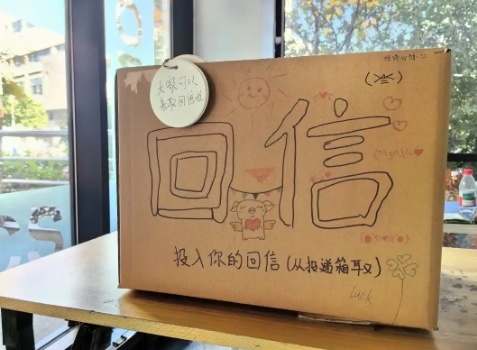 大家可以
来取回信啦
回信
投入你的回信(从投递箱取)
luck